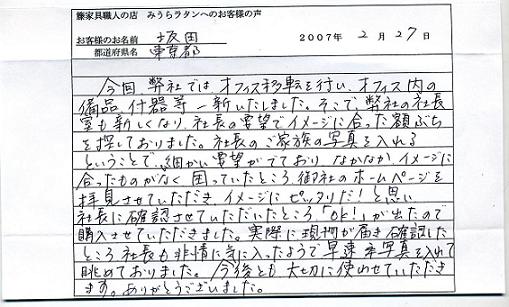 籐家具職人の店 みうらラタンへのお客様の声
お客様のお名前 坂田 2007年 2月 27日
都道府県名 東京都
今回弊社では、オフィス移転を行い、オフィス内の
備品、什器等一新いたしました。そこで、弊社の社長
室も新しくなり、社長の要望でイメージに合った額ぶち
を探しておりました。社長のご家族の写真を入れる
ということで、細かい要望がでており、なかなかイメージに
合ったものがなく困っていたところ、御社のホームページを
拝見させていただき、イメージにピッタリだ!と思い
社長に確認させていただいたところ「OK!」が出たので
購入させていただきました。実際に現物が届き確認した
ところ社長も非情に気に入ったようで早速写真を入れて
眺めておりました。今後とも大切に使わせていただき
ます。ありがとうございました。